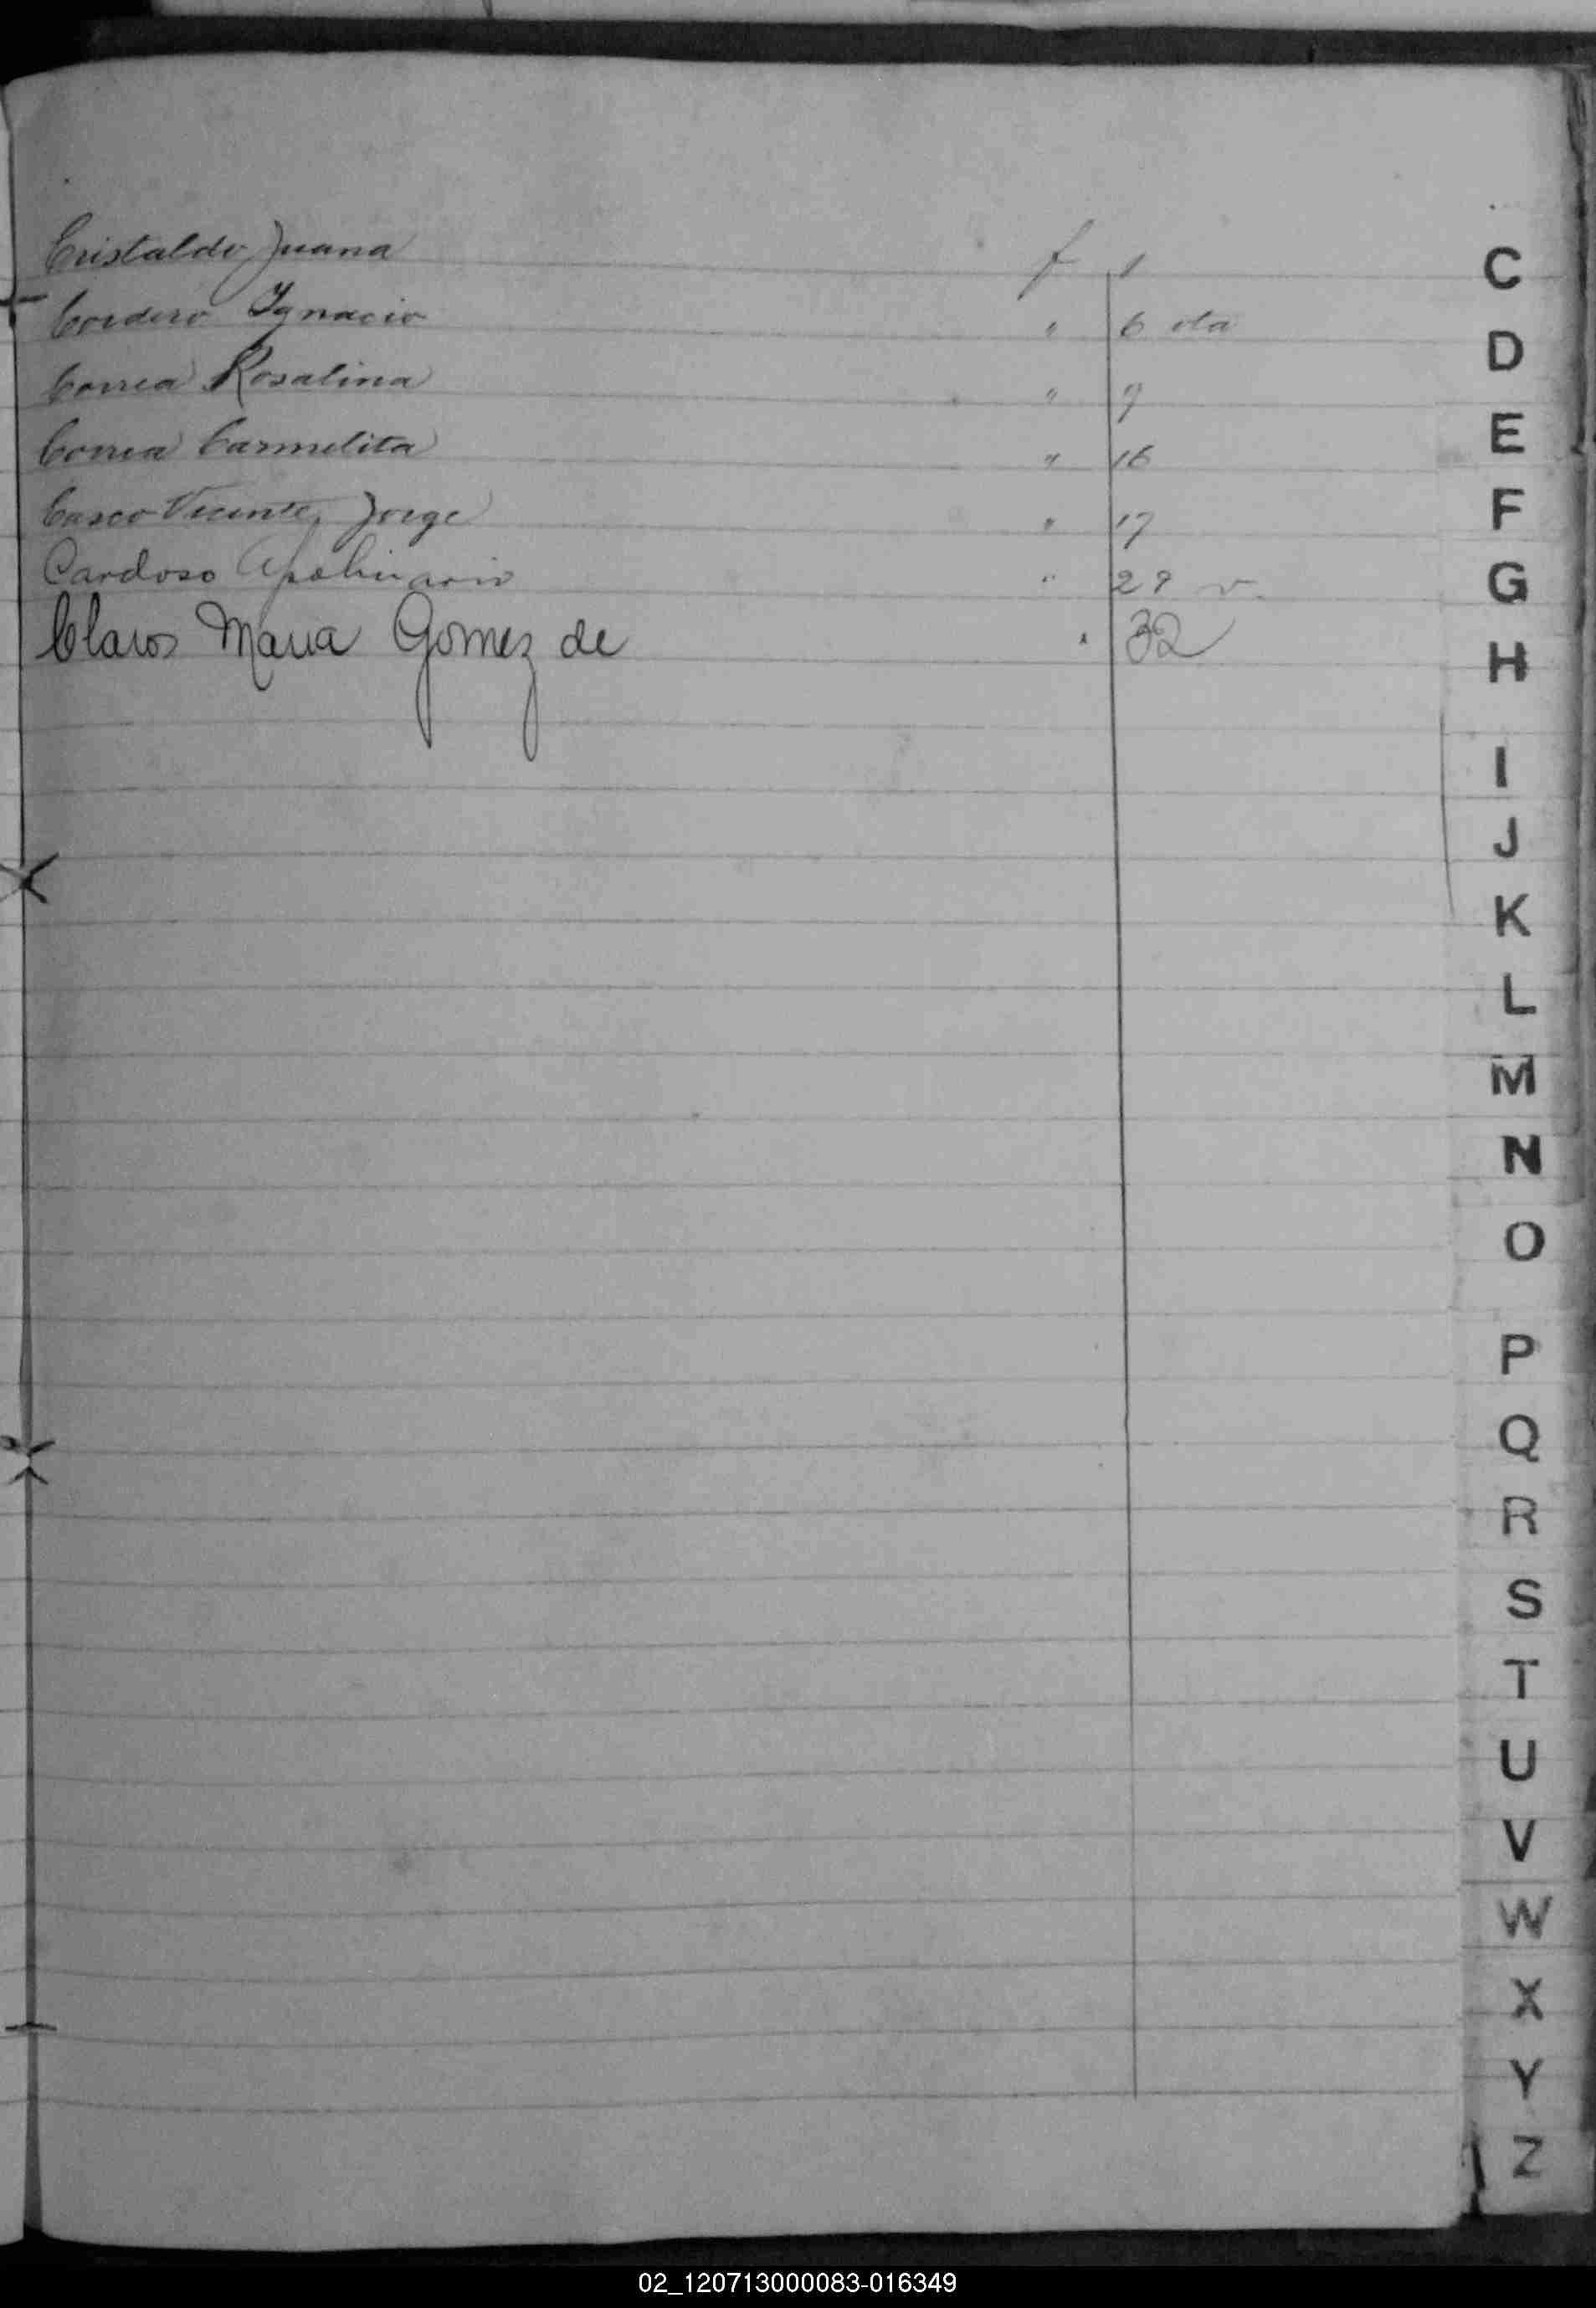 Cristaldo Juana f 1
Cordero Ygnacio " 6 vta
Correa Rosalina " 7
Correa Carmelita " 16
Casco Vicente, Jorge " 17
Cardoso Apolinario " 29 v.
Claros Maria Gomez de " 32
C
D
E
F
G
H
I
J
K
L
M
N
O
P
Q
R
S
T
U
V
W
X
Y
Z
02_120713000083-016349